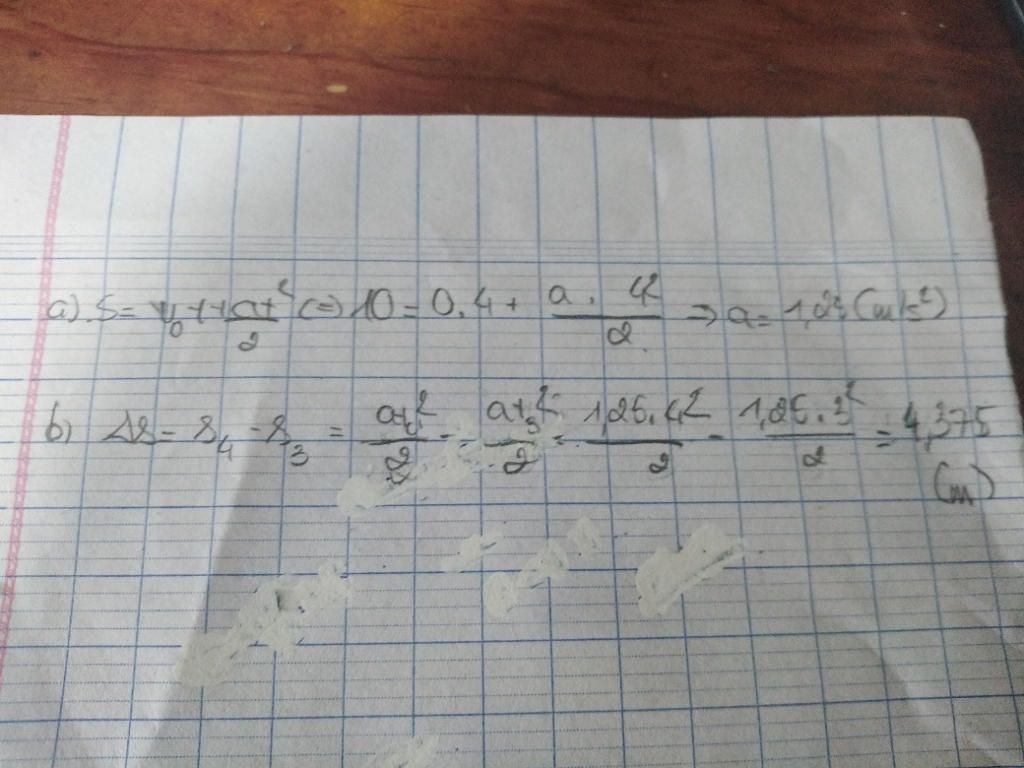 a). S = v₀t + at²/2 (=) 10 = 0.4 + a. 4²/2 => a = 1,25 (m/s²)
b) Δs = s₄ - s₃ = at₄²/2 - at₃²/2 = 1,25.4²/2 - 1,25.3²/2 = 4,375
(m)